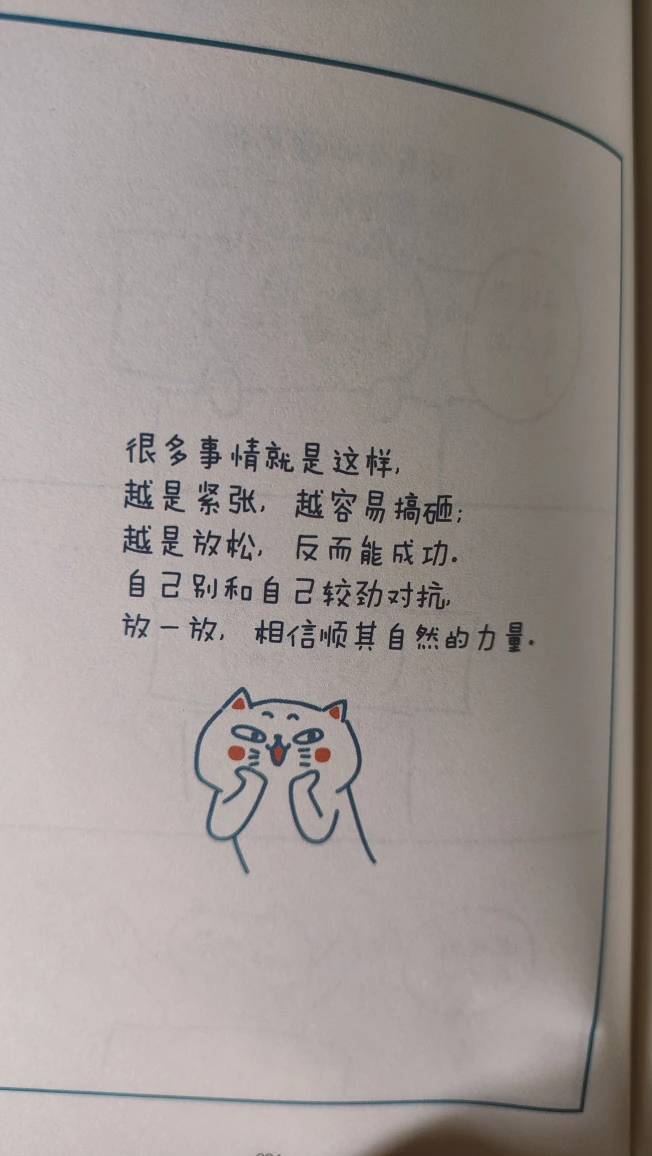 很多事情就是这样,
越是紧张，越容易搞砸;
越是放松，反而能成功.
自己别和自己较劲对抗,
放一放，相信顺其自然的力量.